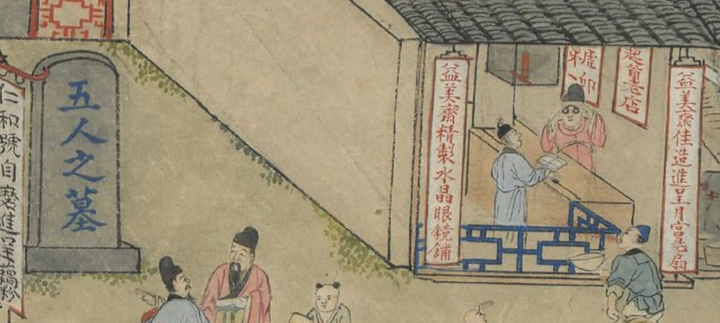 益美齋佳造進呈月宮毫扇
裝首老店
益美齋精製水晶眼鏡舖
五人之墓
仁和號自磨進呈鵝粉